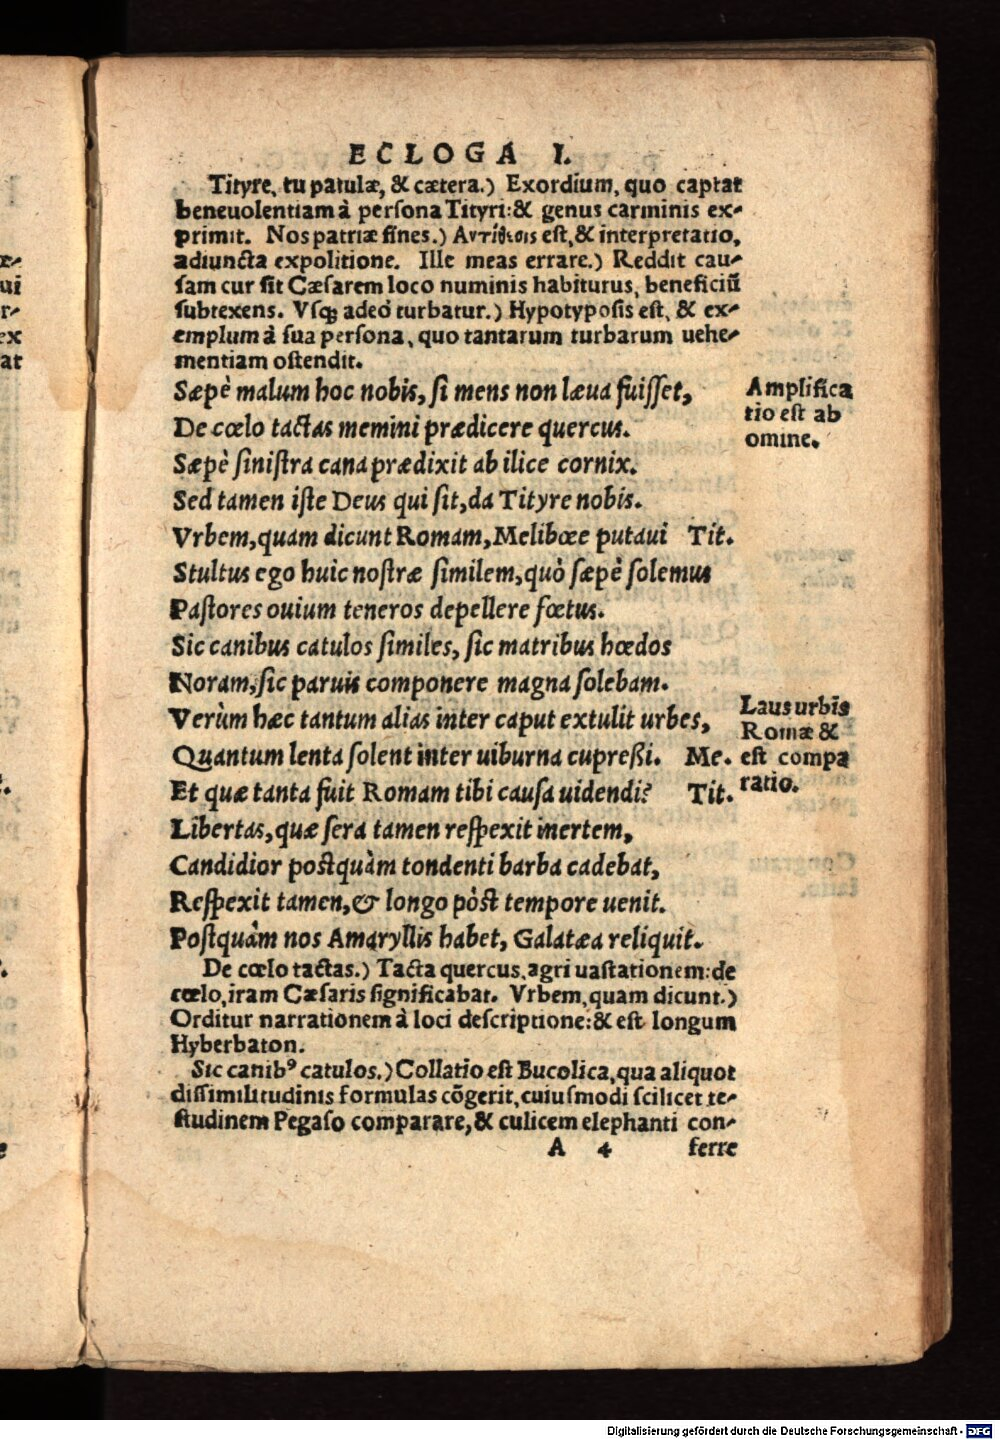 ECLOGA I.
Tityre, tu patulæ, & cætera.) Exordium, quo captat
beneuolentiam à persona Tityri: & genus carminis ex-
primit. Nos patriæ fines.) Αντίθεσις est, & interpretatio,
adiuncta expolitione. Ille meas errare.) Reddit cau-
sam cur sit Cæsarem loco numinis habiturus, beneficiū
subtexens. Vsq; adeò turbatur.) Hypotyposis est, & ex-
emplum à sua persona, quo tantarum turbarum uehe-
mentiam ostendit.
Sæpè malum hoc nobis, si mens non læua fuisset,
Amplifica
tio est ab
omine.
De cœlo tactas memini prædicere quercus.
Sæpè sinistra caua prædixit ab ilice cornix.
Sed tamen iste Deus qui sit, da Tityre nobis.
Vrbem, quam dicunt Romam, Melibœe putaui Tit.
Stultus ego huic nostræ similem, quò sæpè solemus
Pastores ouium teneros depellere fœtus.
Sic canibus catulos similes, sic matribus hœdos
Noram, sic paruis componere magna solebam.
Verùm hæc tantum alias inter caput extulit urbes,
Laus urbis
Romæ &
est compa
ratio.
Quantum lenta solent inter uiburna cupreßi. Me.
Et quæ tanta fuit Romam tibi causa uidendi? Tit.
Libertas, quæ sera tamen respexit inertem,
Candidior postquàm tondenti barba cadebat,
Respexit tamen, & longo pòst tempore uenit.
Postquàm nos Amaryllis habet, Galatæa reliquit.
De cœlo tactas.) Tacta quercus, agri uastationem: de
cœlo, iram Cæsaris significabat. Vrbem, quam dicunt.)
Orditur narrationem à loci descriptione: & est longum
Hyberbaton.
Sic canibꝰ catulos.) Collatio est Bucolica, qua aliquot
dissimilitudinis formulas cōgerit, cuiusmodi scilicet te-
studinem Pegaso comparare, & culicem elephanti con-
A 4 ferre
Digitalisierung gefördert durch die Deutsche Forschungsgemeinschaft - DFG